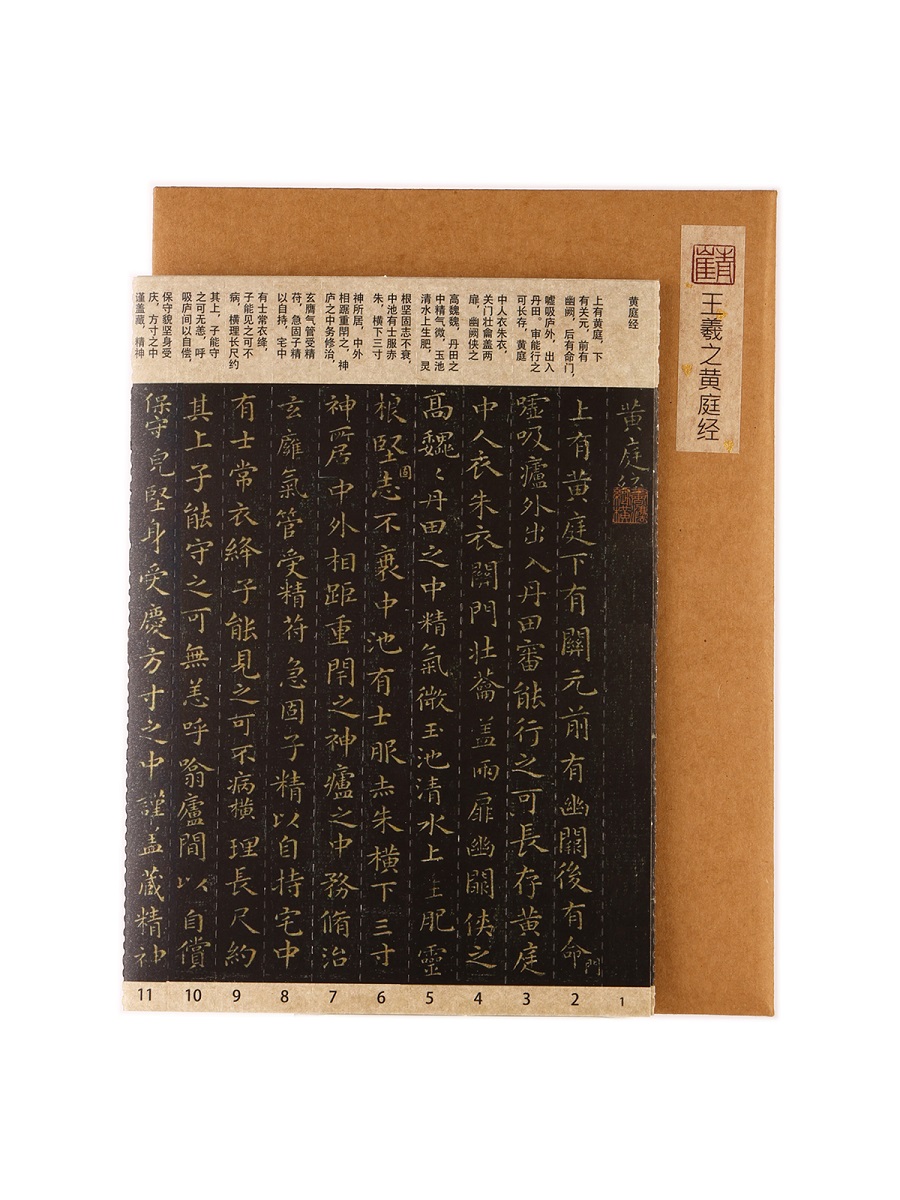 王羲之黄庭经
黄庭经
上有黄庭，下
有关元，前有
幽阙，后有命门，
嘘吸庐外，出入
丹田。审能行之
可长存，黄庭
中人衣朱衣，
关门壮龠盖两
扉，幽阙侠之
高魏魏，丹田之
中精气微，玉池
清水上生肥，灵
根坚固志不衰，
中池有士服赤
朱，横下三寸
神所居，中外
相踞重閉之，神
庐之中务修治，
玄膺气管受精
符，急固子精
以自持，宅中
有士常衣绛，
子能见之可不
病，横理长尺约
其上，子能守
之可无恙，呼
吸庐间以自偿，
保守貌坚身受
庆，方寸之中
谨盖藏，精神
黄庭经
上有黄庭下有關元前有幽闕後有命門
嘘吸廬外出入丹田審能行之可長存黄庭
中人衣朱衣關門壮籥盖兩扉幽闕侠之
高巍々丹田之中精氣微玉池清水上生肥靈
根堅固志不衰中池有士服赤朱横下三寸
神所居中外相距重閇之神廬之中務脩治
玄膺氣管受精苻急固子精以自持宅中
有士常衣絳子能見之可不病横理長尺約
其上子能守之可無恙呼翕廬間以自償
保守皃堅身受慶方寸之中謹盖藏精神
11 10 9 8 7 6 5 4 3 2 1